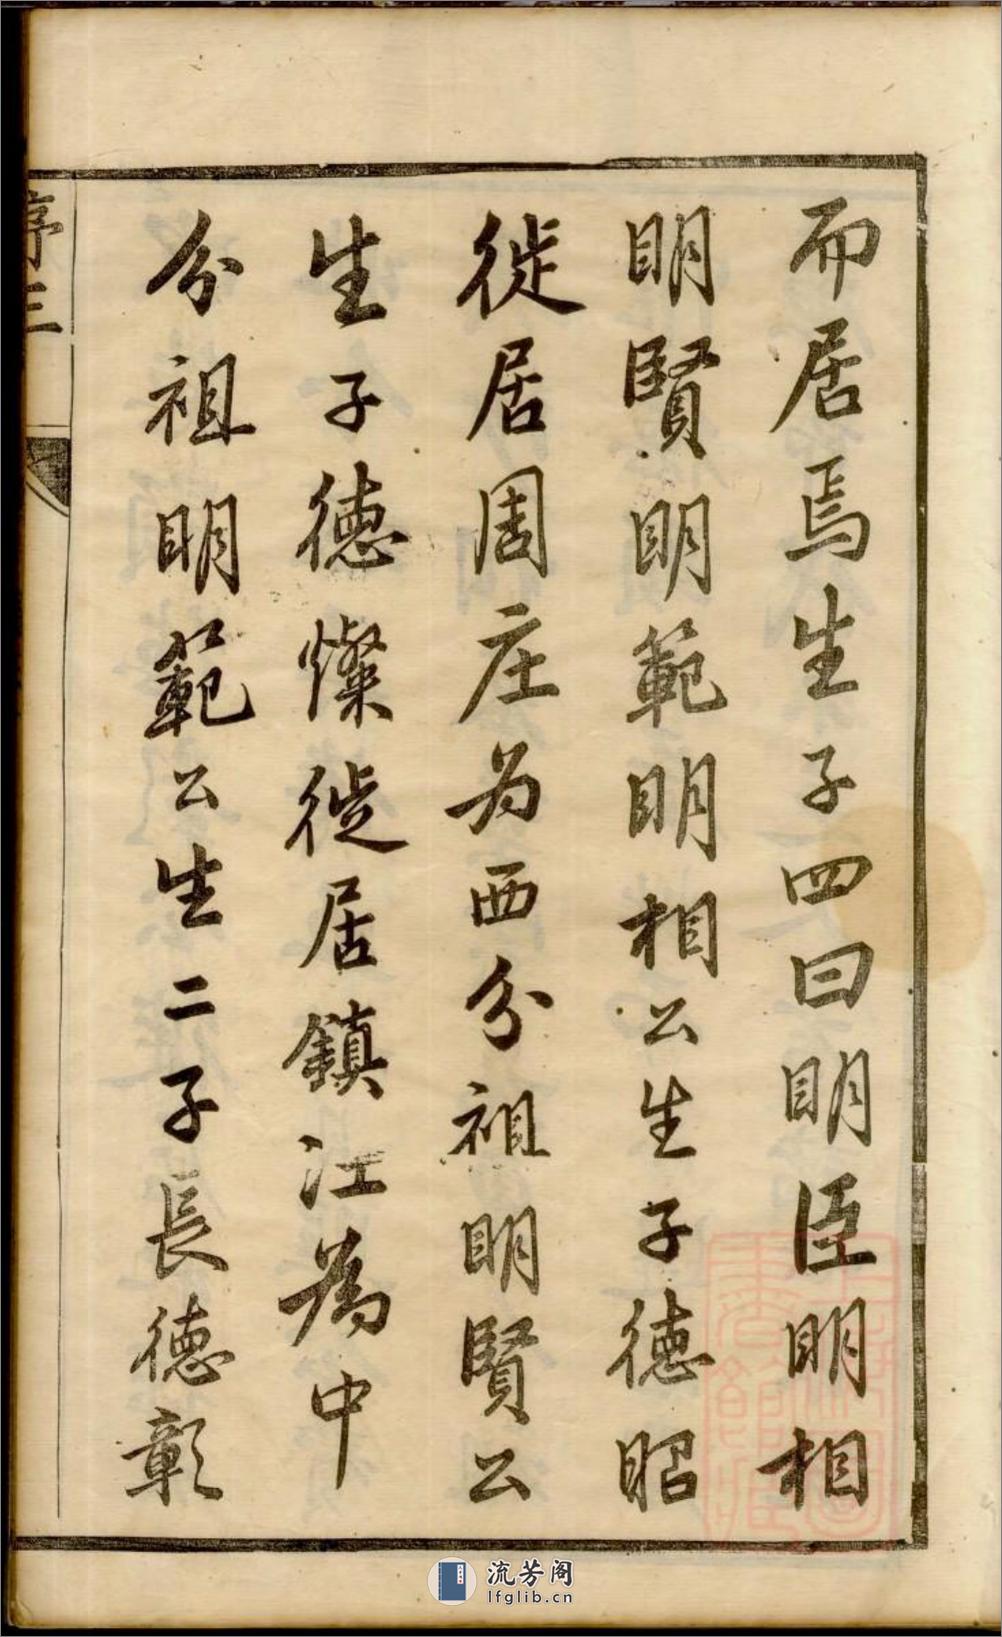 而居焉生子四曰明臣明相
明賢明範明相公生子德昭
徙居周庄为西分祖明賢公
生子德燦徙居鎮江為中
分祖明範公生二子長德彰
序三
流芳阁
lfglib.cn